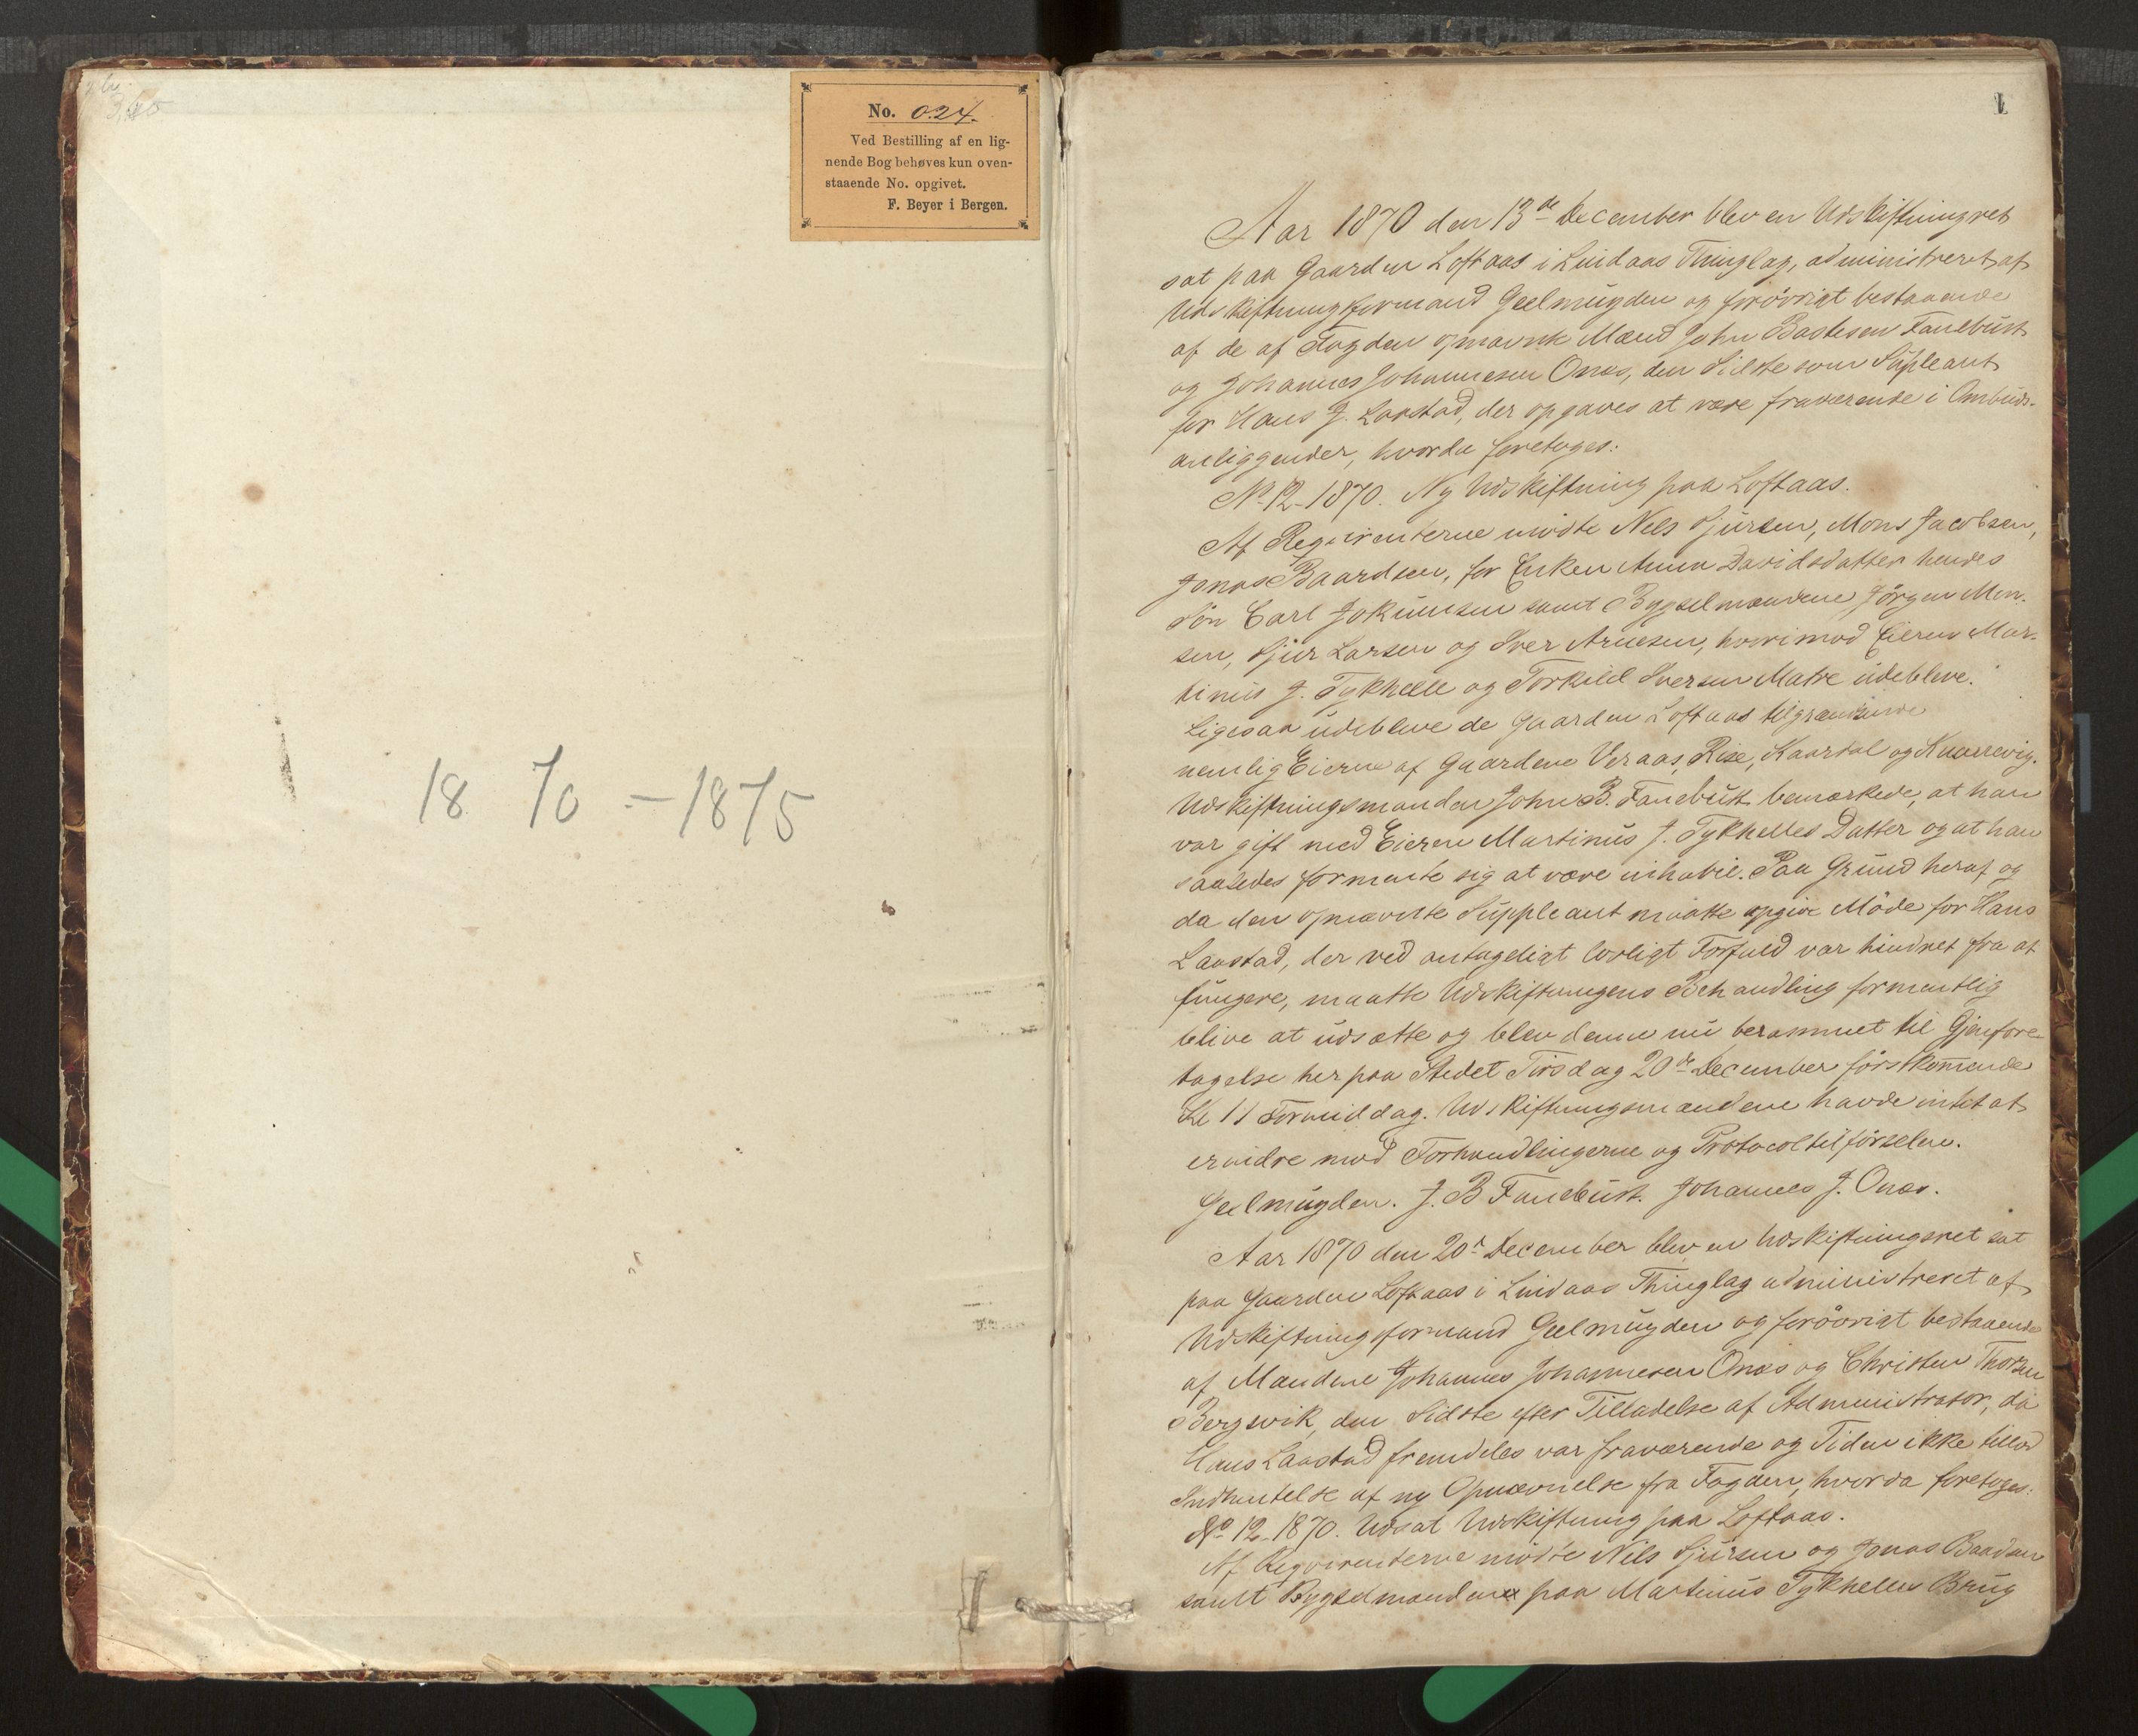 No. 024.
Ved Bestilling af en lig-
nende Bog behøves kun oven-
staaende No. opgivet.
F. Beyer i Bergen.
1870 – 1875
1
Aar 1870 den 13de December blev en Udskiftningsret
sat paa Gaarden Loftaas i Lindaas Thinglag, administreret af
Udskiftningsformand Geelmuyden og forövrigt bestaaende
af de af Fogden opnævnte Mænd John Bastesen Fanebust
og Johannes Johannesen Onæs, den Sidste som Supleant
for Hans J. Laastad, der opgaves at være fraværende i Ombuds-
anliggender, hvorda foretoges:
No 12 - 1870. Ny Udskiftning paa Loftaas.
Af Reqvirenterne mödte Nels Sjursen, Mons Jacobsen,
Jonas Baardsen, for Enken Anna Davidsdatter hendes
Sön Carl Jokumsen samt Bygselmændene Jörgen Mon-
sen, Sjur Larsen og Iver Arnesen, hvorimod Eieren Mar-
tinus J. Tykhelle og Torkild Iversen Matre udebleve.
Ligesaa udebleve de Gaarden Loftaas tilgrændsende
nemlig Eierne af Gaardene Veraas, Rise, Kaardal og Knarrevig.
Udskiftningsmanden John B. Fanebust bemærkede, at han
var gift med Eieren Martinus J. Tykhelles Datter og at han
saaledes formente sig at være inhabil. Paa Grund heraf og
da den opnævnte Suppleant maatte opgive Möde for Hans
Laastad, der ved antageligt lovligt Forfald var hindret fra at
fungere, maatte Udskiftningens Behandling formentlig
blive at udsætte og blev denne nu berammet til Gjenfore-
tagelse her paa Stedet Tirsdag 20de December förstkommende
Kl 11 Formiddag. Udskiftningsmændene havde intet at
erindre mod Forhandlingerne og Protocoltilförselen.
Geelmuyden. J. B Fanebust. Johannes J. Onæs.
Aar 1870 den 20de December blev en Udskiftningsret sat
paa Gaarden Loftaas i Lindaas Thinglag administreret af
Udskiftningsformand Geelmuyden og forövrigt bestaaende
af Mændene Johannes Johannesen Onæs og Christen Thorsen
Bergsvik, den Sidste efter Tilladelse af Administrator, da
Hans Laastad fremdeles var fraværende og Tiden ikke tillod
Indhentelse af ny Opnævnelse fra Fogden, hvorda foretoges:
No 12 - 1870. Udsat Udskiftning paa Loftaas.
Af Reqvirenterne mödte Nils Sjursen og Jonas Baadsen
samt Bygselmændene paa Martinus Tykhelles Brug